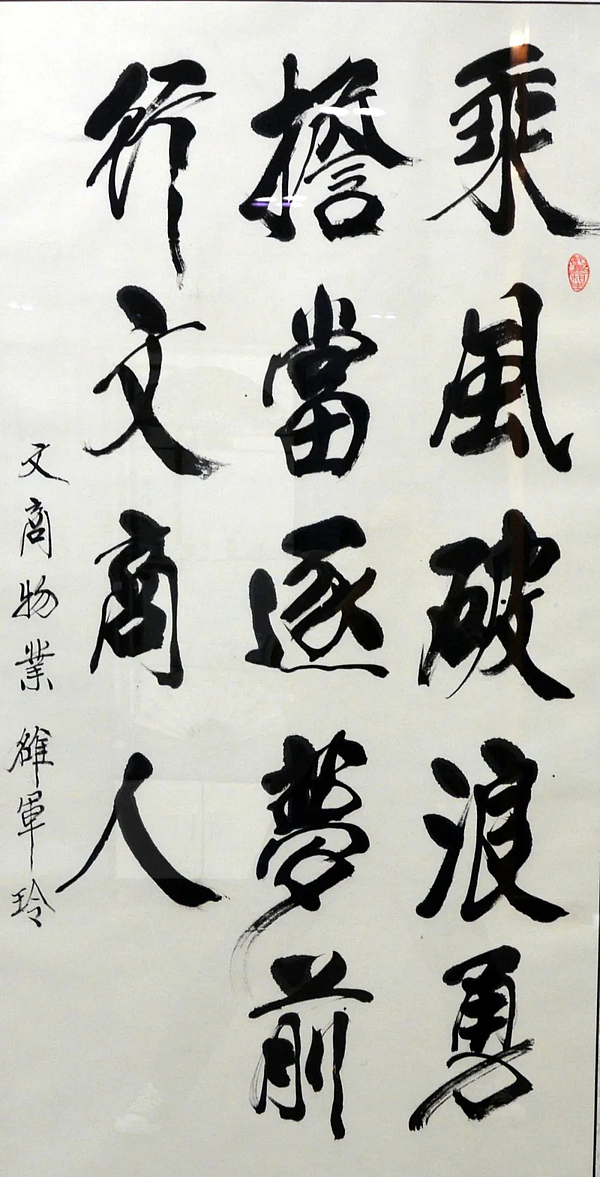 乘風破浪勇
擔當逐夢前
行文商人
文商物業 雒軍玲